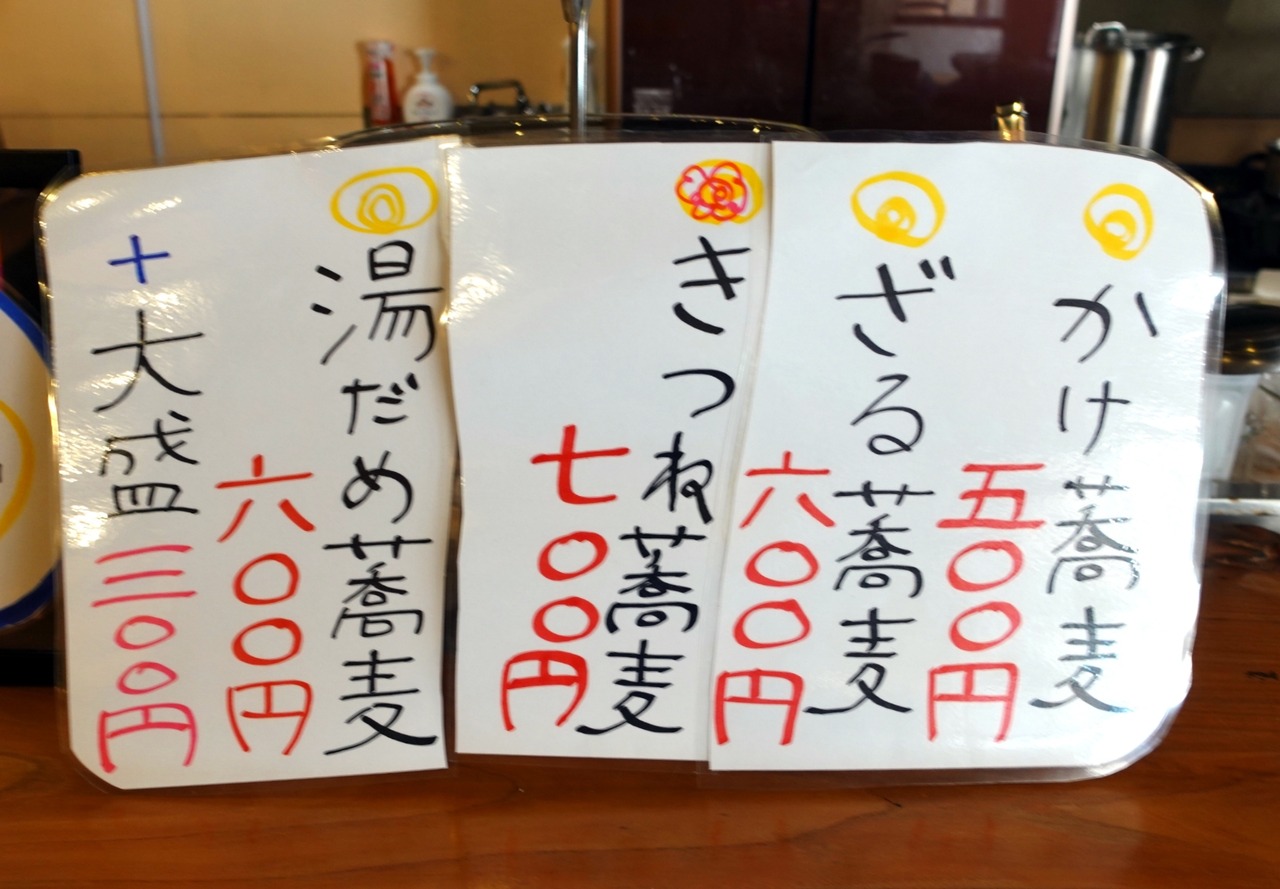 かけ蕎麦
五〇〇円
ざる蕎麦
六〇〇円
きつね蕎麦
七〇〇円
湯だめ蕎麦
六〇〇円
+大盛三〇〇円